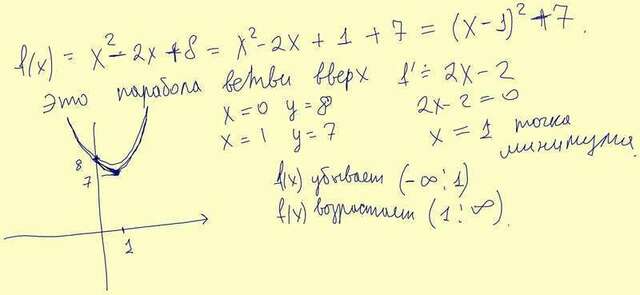 f(x) = x² - 2x + 8 = x² - 2x + 1 + 7 = (x - 1)² + 7.
Это парабола ветви вверх f' = 2x - 2
x = 0 y = 8 2x - 2 = 0
x = 1 y = 7 x = 1 точка
минимума.
8
7
f(x) убывает (-∞; 1)
f(x) возрастает (1; ∞).
1